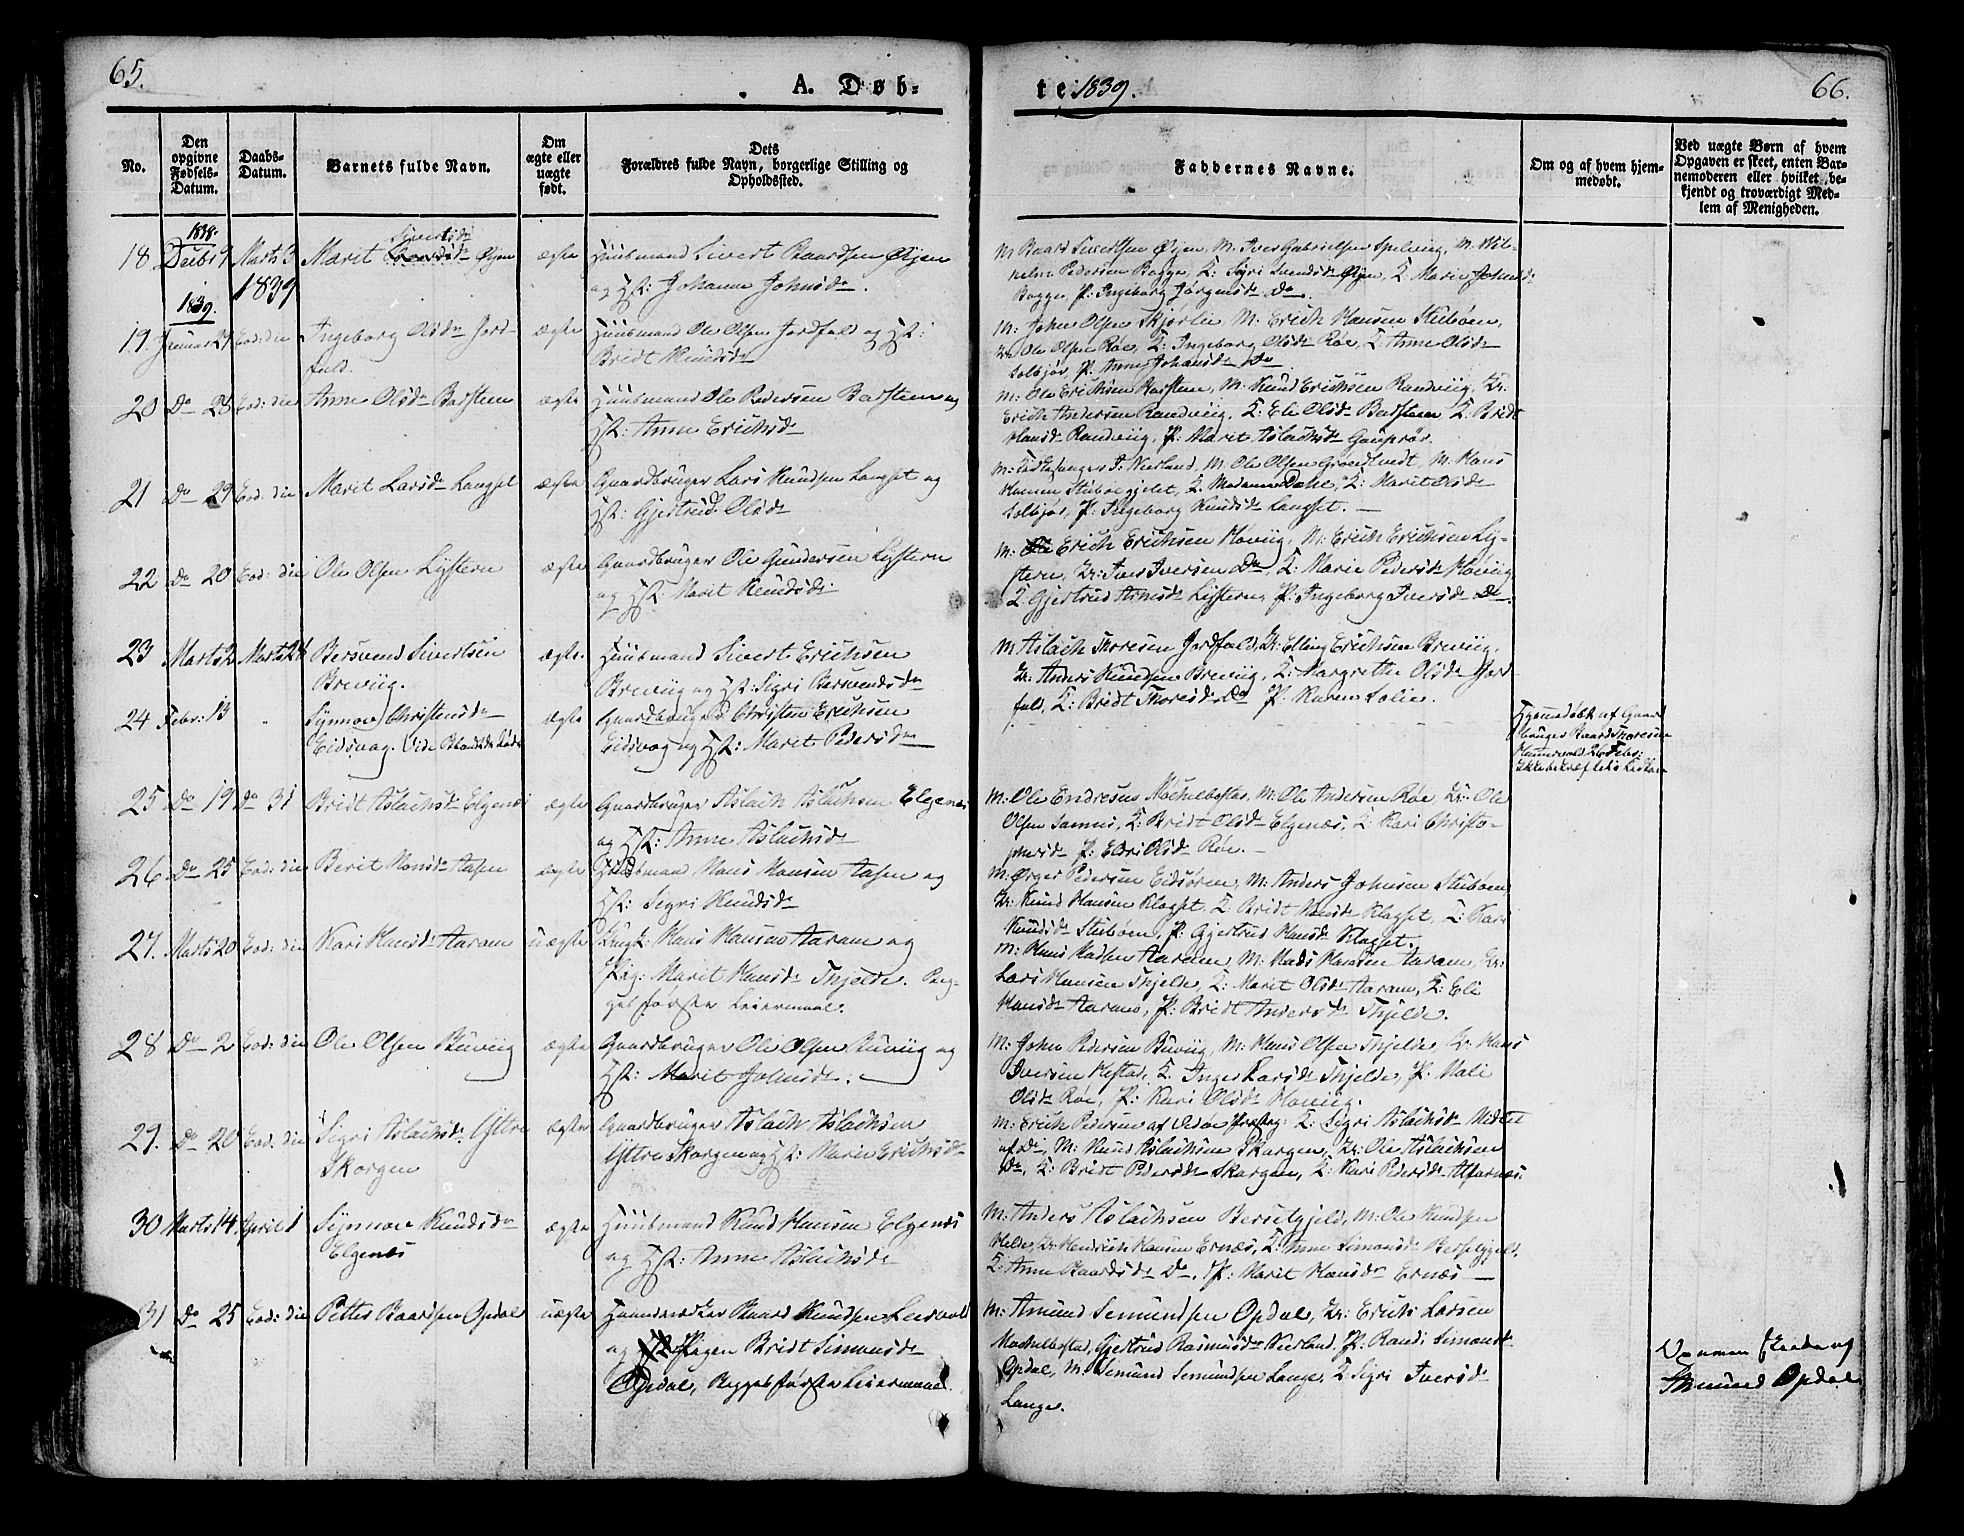 65.
A. Døb-
te 1839.
66.
No.
Den opgivne Fødsels-Datum.
Daabs-Datum.
Barnets fulde Navn.
Om ægte eller uægte født.
Dets
Forældres fulde Navn, borgerlige Stilling og
Opholdssted.
Faddernes Navne.
Om og af hvem hjem-
medøbt.
Ved uægte Børn af hvem
Opgaven er skeet, enten Bar-
nemoderen eller hvilket, be-
kjendt og troværdigt Med-
lem af Menigheden.
1838.
18 Decbr 9 Marts 3 Marit Sivertsdr Øyen ægte Huusmand Sivert Baardsen Øyen
1839 og Hst: Johanne Johnsdr.
M: Baard Sivertsen Øyen, M. Iver Gabrielsen Spelvig, M. Vil-
helm Pedersen Bogge, K: Sigri Svendsdr Øyen, K. Marie Johnsdr
Bogge, P: Ingeborg Jørgensdr Do.
1839.
19. Januar 29 Eod: die Ingeborg Olsdr Jord- ægte Huusmand Ole Olsen Jordfald og Hst:
fald. Bridt Knudsdr
M: John Olsen Skjorlie, M: Erich Hansen Stubøen,
Dr. Ole Olsen Røe, K: Ingeborg Olsdr Røe, K. Anne Olsdr
Solbjør, P. Anne Johansdr Do
20 Do 28 Eod: die Anne Olsdr Barsteen ægte Huusmand Ole Pedersen Barsteen og
Hst: Anne Erichsdr
M: Ole Erichsen Barsteen, M: Knud Erichsen Randviig, Dr.
Erich Andersen Randviig, K: Eli Olsdr Barsteen K: Bridt
Hansdr Randviig, P: Marit Aslachsdr Gauprør.
21 Do 29 Eod: die Marit Larsdr Langset ægte Gaardbruger Lars Knudsen Langset og
Hst: Gjertrud Olsdr
M: Kirkesanger J. Neerland, M. Ole Olsen Grovethvedt, M. Hans
Hansen Stubøegjelet, K. Madame Dahl, K: Marit Olsdr
Solbjør, P: Ingeborg Knudsdr Langset. —
22 Do 20 Eod: die Ole Olsen Lysteen ægte Gaardbruger Ole Gundersen Lysteen
og Hst: Marit Knudsdr
M: Erich Erichsen Høviig, M: Erich Erichsen Ly-
steen, Dr: Iver Iversen Do, K: Marie Pedersdr Høviig
K. Gjertrud Arnsdr Lysteen, P: Ingeborg Iversdr Do.
23 Marts 2 Marts 24 Bersvend Sivertsen ægte. Huusmand Sivert Erichsen
Breviig. Breviig og Hst: Sigri Bersvendsdr
M: Aslach Thoresen Jordfald, Dr: Elling Erichsen Breviig,
Dr. Anders Knudsen Breviig, K: Margrethe Olsdr Jord-
fald, K: Bridt Thoresdr Do P: Karen Solie.
24 Febr: 13 Synnove Christensdr ægte Gaardbruger Christen Erichsen
Eidsvag. Vide Eidsvog og Hst: Marit Pedersdr
Hjemmedøbt af Gaard
bruger Baard Thoresen
26 Febr:
25 Do 19 Do 31 Bridt Aslachsdr Elgenæs ægte Gaardbruger Aslach Aslachsen Elgenæs
og Hst: Anne Aslachsdr
M: Ole Endresen Møchelbostad, M: Ole Andersen Røe, Dr: Ole
Olsen Samnes, K: Bridt Olsdr Elgenæs, K: Kari Christo-
phersdr P: Olsdr Røe. —
26 Do 25 Eod: die Berit Hansdr Aasen ægte Huusmand Hans Hansen Aasen og
Hst: Sigri Knudsdr
M: Pedersen Eidsøren, M: Anders Johnsen Stubøen
Dr: Knud Hansen Klogset, K: Bridt Klogset, K: Kari
Knudsdr Stubøen, P: Gjertrud Hansdr Klogset.
27. Marts 20 Eod: die Kari Hansdr Aaram uægte Ungk: Hans Hansen Aaram og
Pig: Marit Hansdr Thjelde. Beg-
ges første Leiermaal.
M: Hans Madsen Aaram, M: Mads Hansen Aaram, Dr:
Lars Hansen Thjelde, K: Marit Olsdr Aaram, K: Eli
Hansdr Aaram, P: Bridt Andersdr Thjelde.
28 Do 2 Eod: die Ole Olsen Buviig ægte Gaardbruger Ole Olsen Buviig og
Hst: Marit Johnsdr.
M: John Pedersen Buviig, M: Hans Olsen Thjelde, Dr: Hans
Iversen Hestad, K. Inger Larsdr Thjelde, P: Mali
Olsdr Røe, P: Kari Olsdr Høviig.
29. Do 20 Eod: die Sigri Aslachsdr Yttre ægte Gaardbruger Aslach Aslachsen
Skorgen Yttre Skorgen og Hst: Marie Erichsdr
M: Erich Pedersen af Vedøe Præsteg: K: Sigri Aslachsdr
af Do, M: Knud Aslachsen Skorgen, Dr: Ole Aslachsen
Do, K: Bridt Pedersdr Skorgen, K: Kari Pedersdr Alfarnæs.
30 Marts 14. April 1 Synnove Knudsdr ægte Huusmand Knud Hansen Elgenæs
Elgenæs og Hst: Anne Aslachsdr
M: Anders Aslachsen Bersetgjeld, M: Ole Knudsen
Helde, Dr: Hendrich Hansen Ernæs, K: Anne Simonsdr Bersetgjeld,
K: Anne Baardsdr Do, P: Marit Hansdr Ernæs —
31 Do 25 Eod: die Petter Baardsen Opdal uægte Baard Knudsen
og Pigen Bridt Simonsdr
Opdal, Begges første Leiermaal
M: Amund Semundsen Opdal, Dr: Erich Larsen
Møchelbostad, Gjertrud Rasmusdr Neerland, P. Randi Simonsdr
Opdal, M. Semund Semundsen Lange, K: Sigri Iversdr
Lange.
Amund Opdal